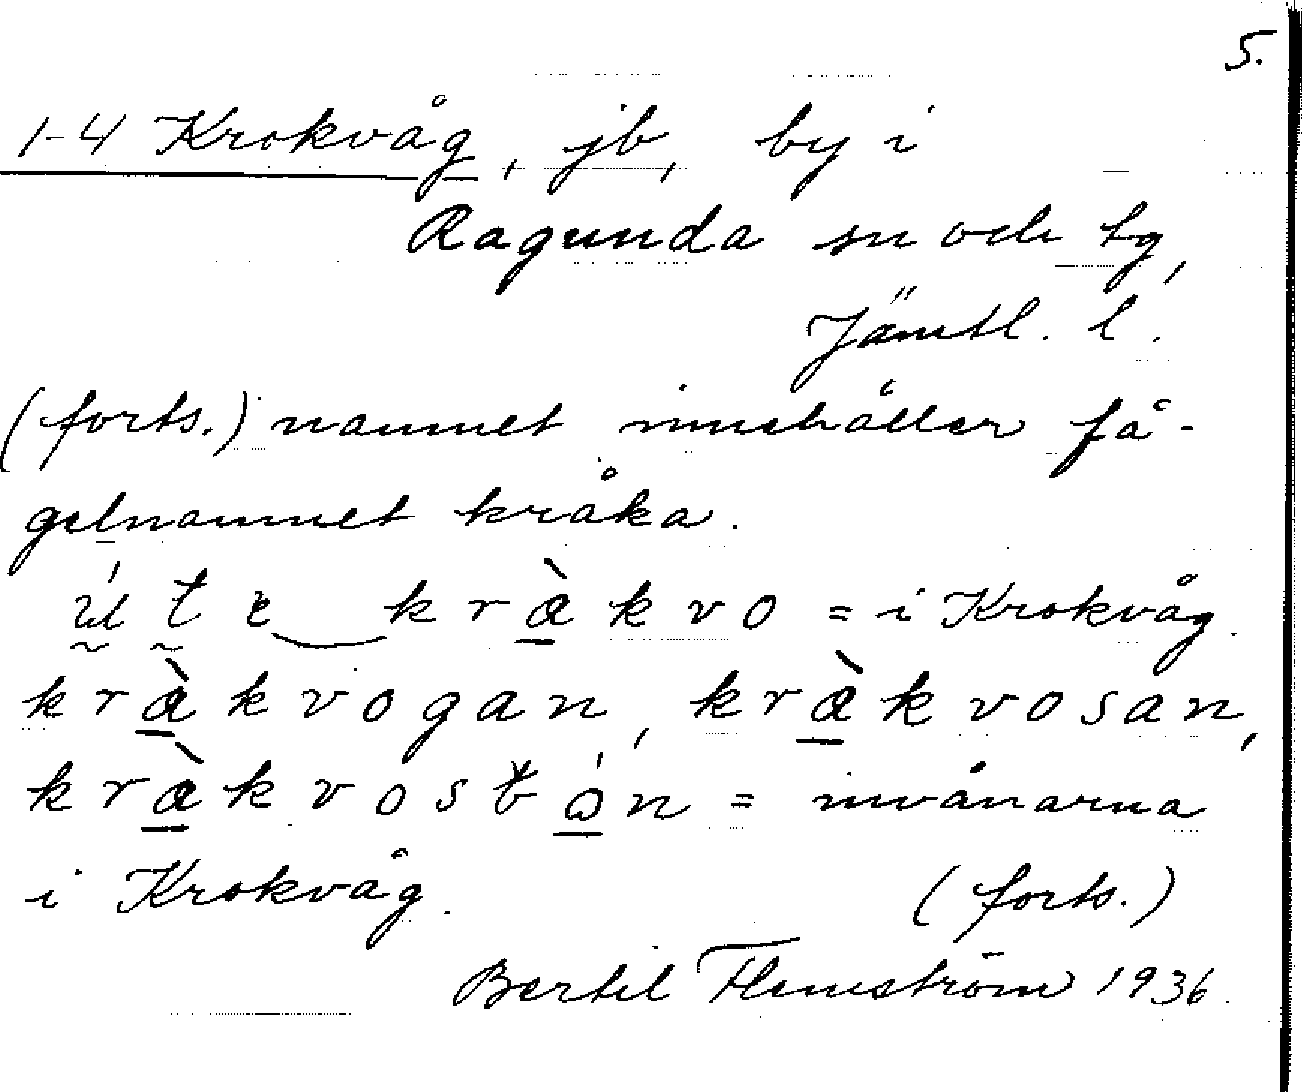 5.
1-4 Krokvåg, jb, by i
Ragunda sn och tg,
Jämtl. l.
(forts.) namnet innehåller få-
gelnamnet kråka.
ú t e kràkvo = i Krokvåg.
kràkvogan, kràkvosan,
kràkvostón = invånarna
i Krokvåg. (forts.)
Bertil Flemström 1936.